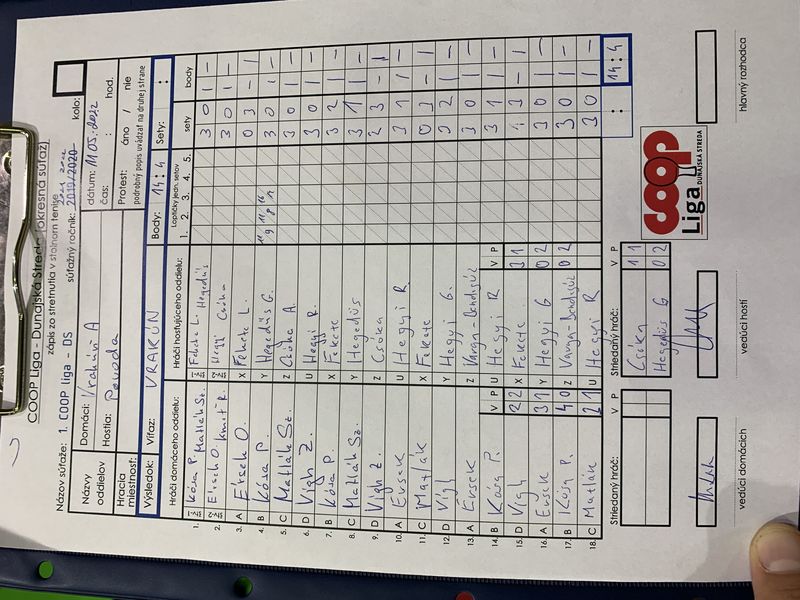 COOP Liga - Dunajská Streda (okresná súťaž)
zápis zo stretnutia v stolnom tenise
Názov súťaže: 1. COOP liga - DS súťažný ročník: 2019/2020 kolo:
Názvy oddielov
Domáci: Vrakúň A
Hostia: Povoda
dátum: 11.05.2022
čas: : hod.
Hracia miestnosť:
Protest: áno nie
podrobný popis uvádzať na druhej strane
Výsledok: Víťaz: VRAKÚŇ Body: 14:4 Sety: :
Hráči domáceho oddielu: Hráči hosťujúceho oddielu: Loptičky jedn. setov sety body
1. 2. 3. 4. 5.
1. Kósa P. Matlák Sz. Fekete L. Hegedüs 3 0 1 –
2. Érsek O. Hegyi Csóka 3 0 1 –
3. A Érsek O. X Fekete L. 0 3 – 1
4. B Kósa P. Y Hegedüs G. 11 11 16 3 0 1 –
5. C Matlák Sz. Z Csóka A. 3 0 1 –
6. D Vígh Z. U Hegyi R. 3 0 1 –
7. B Kósa P. X Fekete 3 2 1 –
8. C Matlák Sz. Y Hegedüs 3 1 1 –
9. D Vígh Z. Z Csóka 2 3 – 1
10. A Érsek U Hegyi R. 3 1 1 –
11. C Matlák X Fekete 0 3 – 1
12. D Vígh Y Hegyi G. 3 2 1 –
13. A Érsek Z Varga-Bendegúz 3 0 1 –
14. B Kósa P. V P U Hegyi R V P 3 1 1 –
15. D Vígh 2 2 X Fekete 3 1 1 3 – 1
16. A Érsek 3 1 Y Hegyi G 0 2 3 0 1 –
17. B Kósa P. 4 0 Z Varga-Bendegúz 0 2 3 0 1 –
18. C Matlák 2 1 U Hegyi R 3 0 1 –
Striedaný hráč: V P Striedaný hráč: V P : 14:4
Csóka 1 1
Hegedüs G 0 2
coop
Liga DUNAJSKÁ STREDA
vedúci domácich vedúci hostí hlavný rozhodca